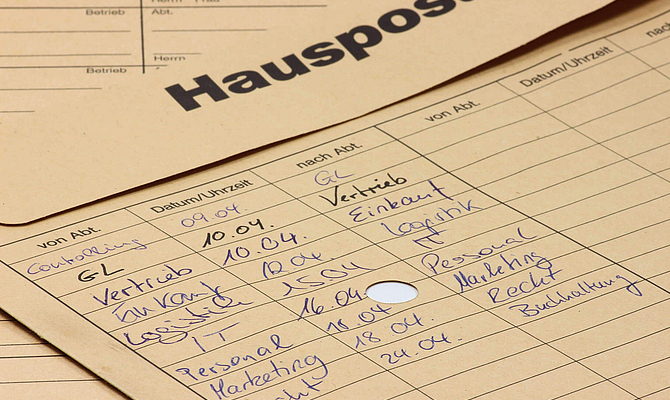 Betrieb Abt.
Herrn
Betrieb Herrn
Hauspost
von Abt. Datum/Uhrzeit nach Abt. von Abt. Datum/Uhrzeit nach
Controlling 09.04 GL
GL 10.04. Vertrieb
Vertrieb 10.04. Einkauf
Einkauf 12.04. Logistik
Logistik 15.04 IT
IT 16.04 Personal
Personal 18.04 Marketing
Marketing 18.04. Recht
cht 24.04. Buchhaltung